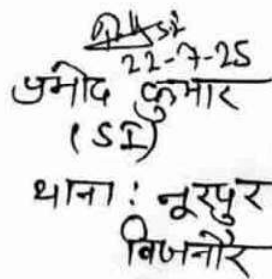 22-7-25
प्रमोद कुमार
(SI)
थाना : नूरपुर
बिजनौर